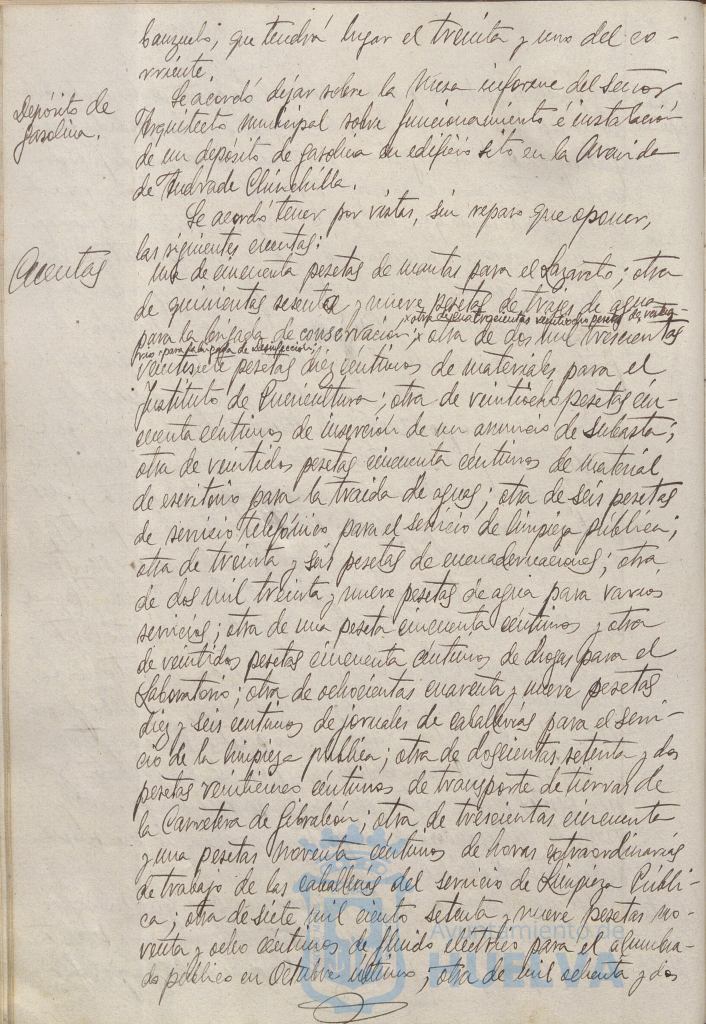 banzuelo, que tendrá lugar el treinta y uno del co-
rriente.
Depósito de
gasolina.
Se acordó dejar sobre la Mesa informe del Señor
Arquitecto Municipal sobre funcionamiento é instalación
de un depósito de gasolina en edificio sito en la Avenida
de Andrade Chinchilla.
Se acordó tener por vistas, sin reparo que oponer,
las siguientes cuentas:
Cuentas
Una de cincuenta pesetas de mantas para el Lazareto; otra
de quinientas sesenta y nueve pesetas de trajes de agua
para la brigada de conservación; x otra de dos mil trescientas
x otra de pesetas veintiocho
para la brigada de desinfección;
veintisiete pesetas diez céntimos de materiales para el
Instituto de Puericultura; otra de veintiocho pesetas cin-
cuenta céntimos de inserción de un anuncio de subasta;
otra de veintidos pesetas cincuenta céntimos de material
de escritorio para la traida de aguas; otra de seis pesetas
de servicio telefónico para el servicio de limpieza pública;
otra de treinta y seis pesetas de encuadernaciones; otra
de dos mil treinta y nueve pesetas de agua para varios
servicios; otra de una peseta cincuenta céntimos y otra
de veintidos pesetas cincuenta céntimos de drogas para el
Laboratorio; otra de ochocientas cuarenta y nueve pesetas
diez y seis céntimos de jornales de caballerías para el servi-
cio de la limpieza pública; otra de doscientas setenta y dos
pesetas veinticinco céntimos de transporte de tierras de
la Carretera de Gibraleón; otra de trescientas cincuenta
y una pesetas noventa céntimos de horas extraordinarias
de trabajo de las caballerías del servicio de Limpieza Públi-
ca; otra de siete mil ciento setenta y nueve pesetas no-
venta y ocho céntimos de fluido eléctrico para el alumbra-
do público en Octubre último; otra de mil ochenta y dos
Ayuntamiento de
HUELVA